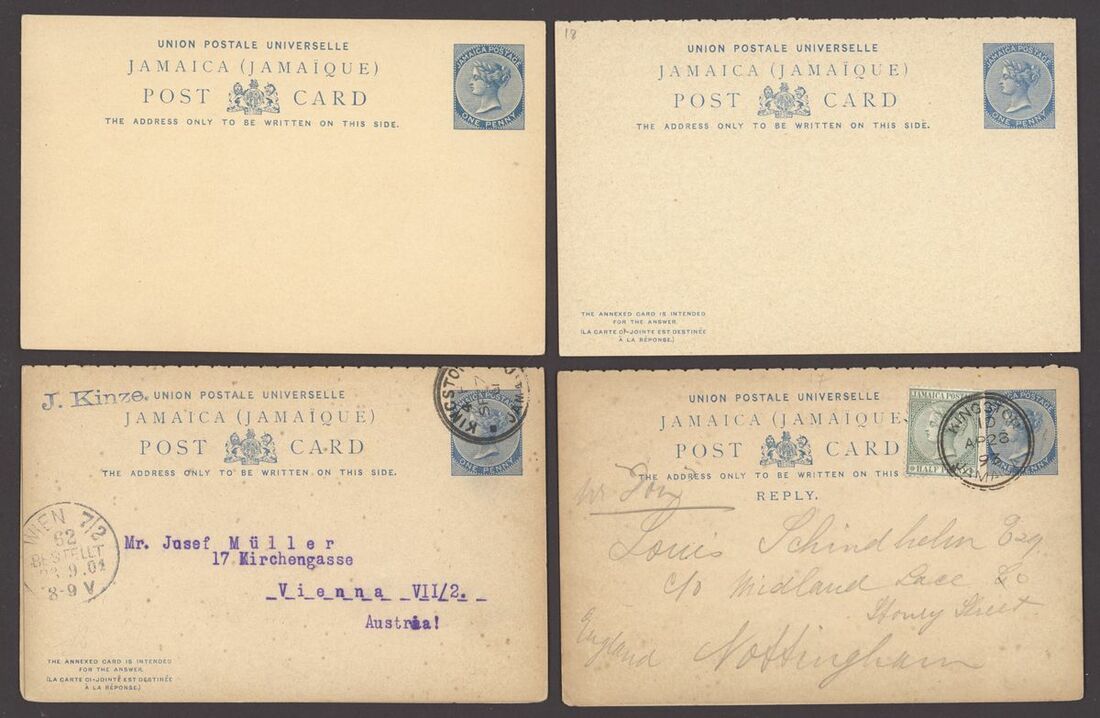 UNION POSTALE UNIVERSELLE
JAMAICA (JAMAÏQUE)
POST CARD
THE ADDRESS ONLY TO BE WRITTEN ON THIS SIDE.
JAMAICA POSTAGE
ONE PENNY
18
UNION POSTALE UNIVERSELLE
JAMAICA (JAMAÏQUE)
POST CARD
THE ADDRESS ONLY TO BE WRITTEN ON THIS SIDE.
JAMAICA POSTAGE
ONE PENNY
THE ANNEXED CARD IS INTENDED
FOR THE ANSWER.
(LA CARTE CI-JOINTE EST DESTINÉE
À LA RÉPONSE.)
J. Kinze.
UNION POSTALE UNIVERSELLE
JAMAICA (JAMAÏQUE)
POST CARD
THE ADDRESS ONLY TO BE WRITTEN ON THIS SIDE.
KINGSTON
ONE PENNY
WIEN 7/2
62
BESTELLT
9.01
8-9 V
Mr. Jusef Müller
17 Kirchengasse
Vienna VII/2.
Austria!
THE ANNEXED CARD IS INTENDED
FOR THE ANSWER.
(LA CARTE CI-JOINTE EST DESTINÉE
À LA RÉPONSE.)
UNION POSTALE UNIVERSELLE
JAMAICA (JAMAÏQUE)
POST CARD
THE ADDRESS ONLY TO BE WRITTEN ON THIS SIDE.
REPLY.
JAMAICA POSTAGE
HALF
KINGSTON
AP 28
PENNY
Louis Schindhelm Esq
c/o Midland Lace Co
Stoney Street
Nottingham
England